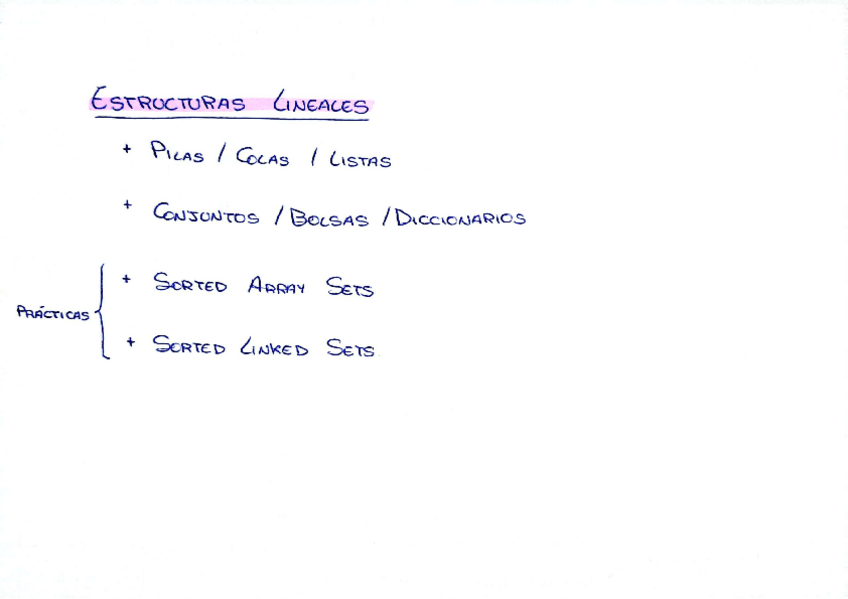 ESTRUCTURAS LINEALES
+ PILAS / COLAS / LISTAS
+ CONJUNTOS / BOLSAS / DICCIONARIOS
+ SORTED ARRAY SETS
PRÁCTICAS
+ SORTED LINKED SETS